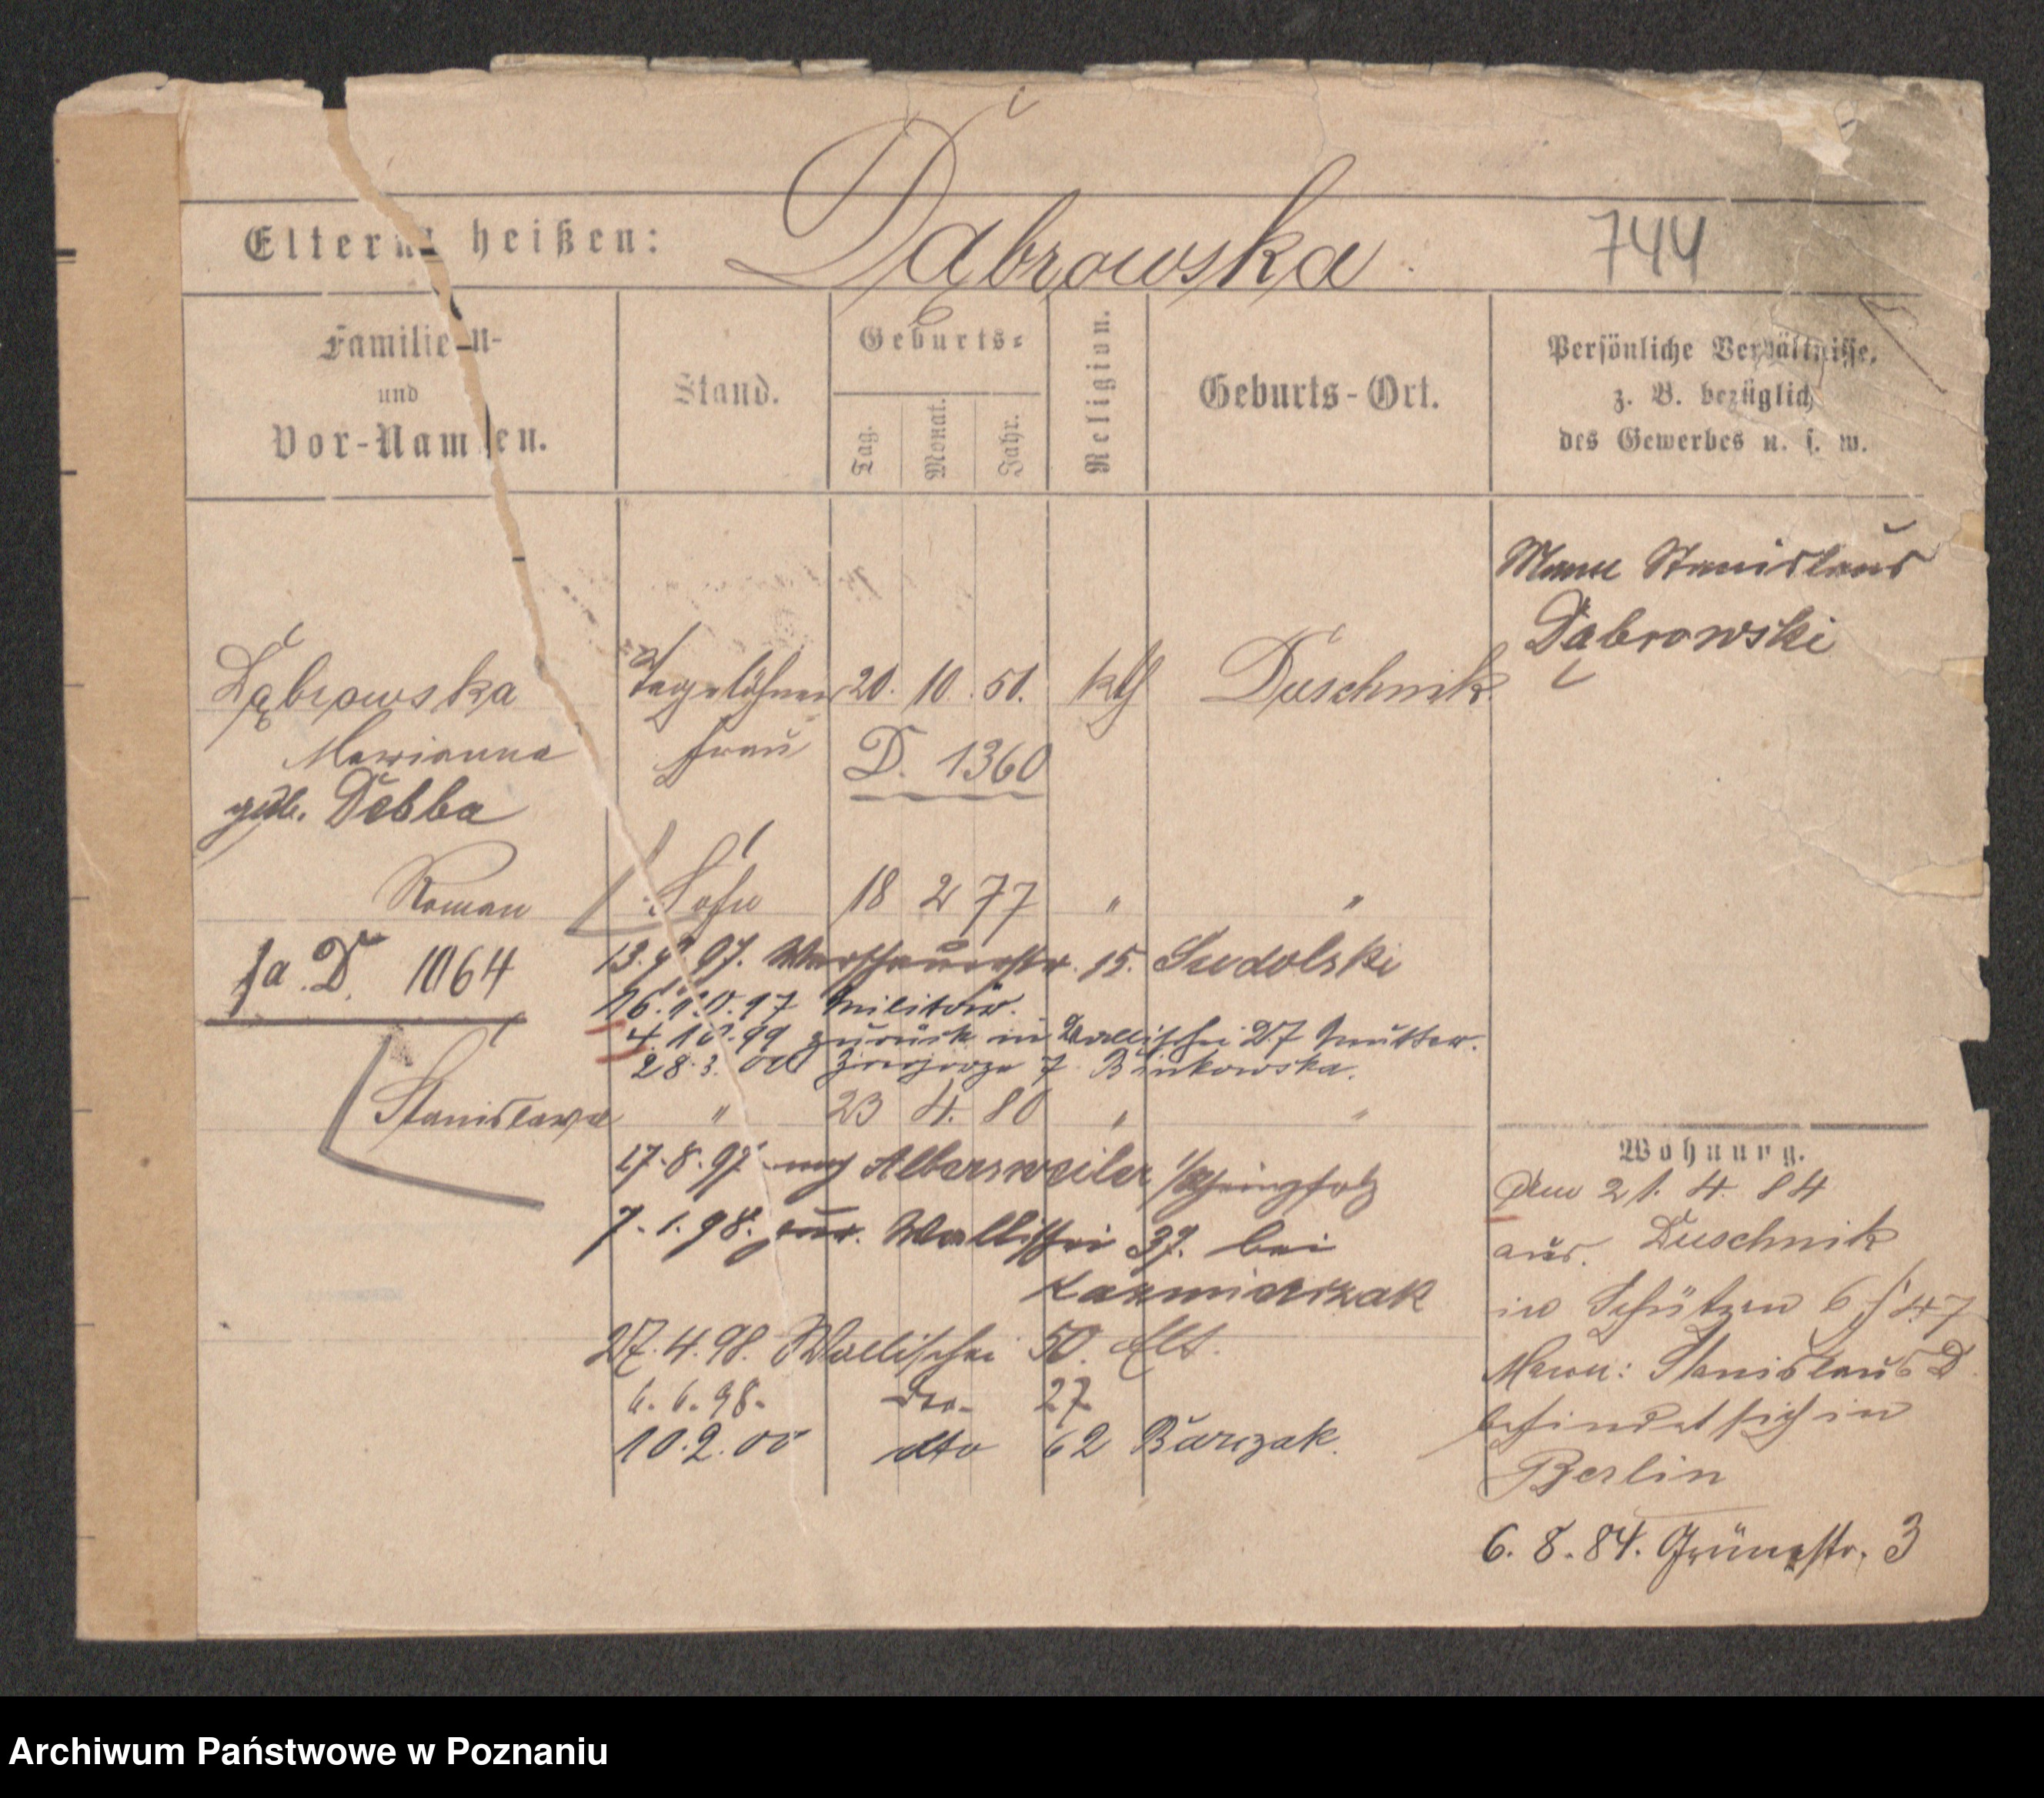 Dąbrowska.
744
Eltern heißen:
Familien-
und
Vor-Namen.
Stand.
Geburts-
Tag.
Monat.
Jahr.
Religion.
Geburts-Ort.
Persönliche Verhältnisse,
z. B. bezüglich
des Gewerbes u. s. w.
Mann Stanislaus
Dąbrowski
Dąbrowska Tagelöhner 20. 10. 51. kth Duschnik
Marianna frau D. 1360
geb. Debba
Roman Sohn 18 2 77 " "
fa. D. 1064
13. 97. Warschauerstr. 15. Sudolski
16. 10. 97 Militär.
4. 10. 99 zurück in Wallischei 27 Mutter.
28. 3. 00 Zawady 7 Binkowska.
Stanislawa " 23 4. 80 " "
17. 8. 97 nach Albersweiler
7. 1. 98. zur. Wallischei 37. bei
Kazmierczak
27. 4. 98. Wallischei 50. Elt.
6. 6. 98. dto. 27
10. 2. 00 dto 62 Barczak.
Wohnung.
Den 21. 4. 84
aus. Duschnik
in Schützen 6
Mann: Stanislaus D.
befindet sich in
Berlin
6. 8. 84. Grünestr. 3
Archiwum Państwowe w Poznaniu